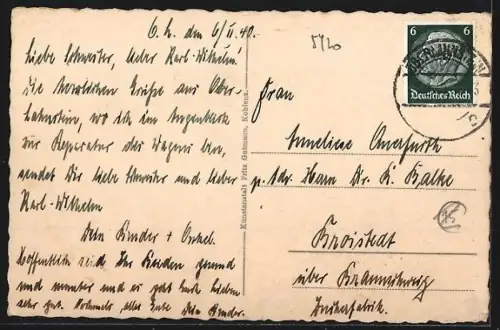 O. L. den 6/II.40.
Liebe Schwester, lieber Karl-Wilhelm!
Die herzlichsten Grüße aus Ober-
lahnstein, wo ich im Augenblick
zur Reparatur des Wagens bin,
sendet Dir liebe Schwester und lieber
Karl-Wilhelm
Dein Bruder + Onkel.
Hoffentlich seid Ihr beiden gesund
und munter und es geht Euch lieben
sehr gut. Nochmals alles Gute Dein Bruder.
Kunstanstalt Fritz Gutmann, Koblenz.
5/20
6 6
Deutsches Reich
OBERLAHNSTEIN
Frau
Anneliese
p. Adr. Herrn Dr. K. Halke
Broistedt
über Braunschweig
Zuckerfabrik.